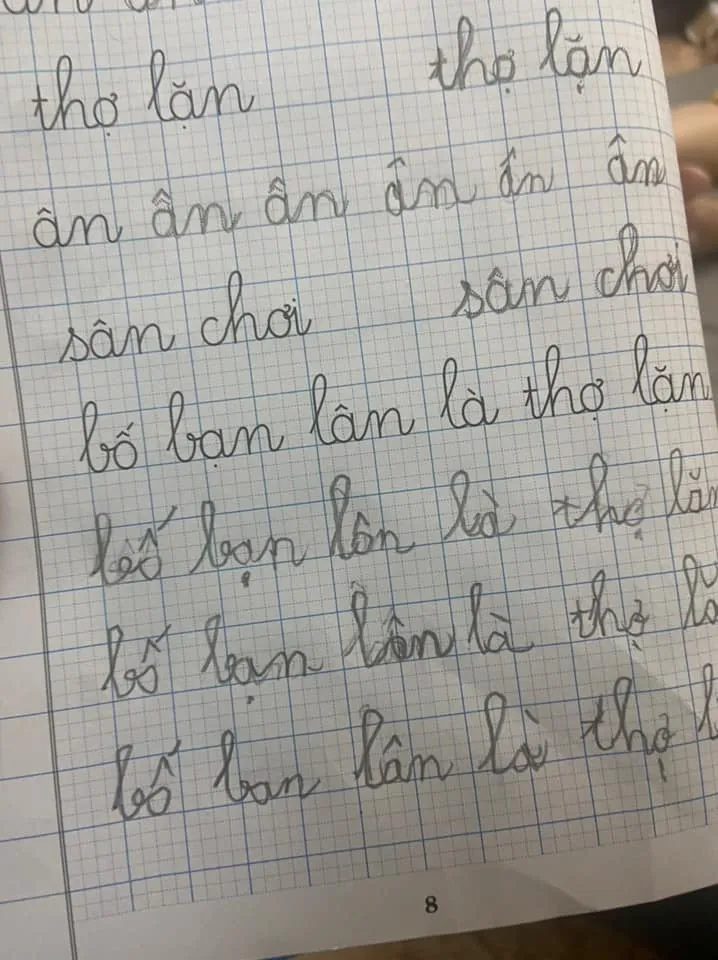 thợ lặn thợ lặn
ân ân ân ân ân ân
sân chơi sân chơi
bố bạn lân là thợ lặn
bố bạn lân là thợ
bố bạn lân là thợ
bố bạn lân là thợ
8